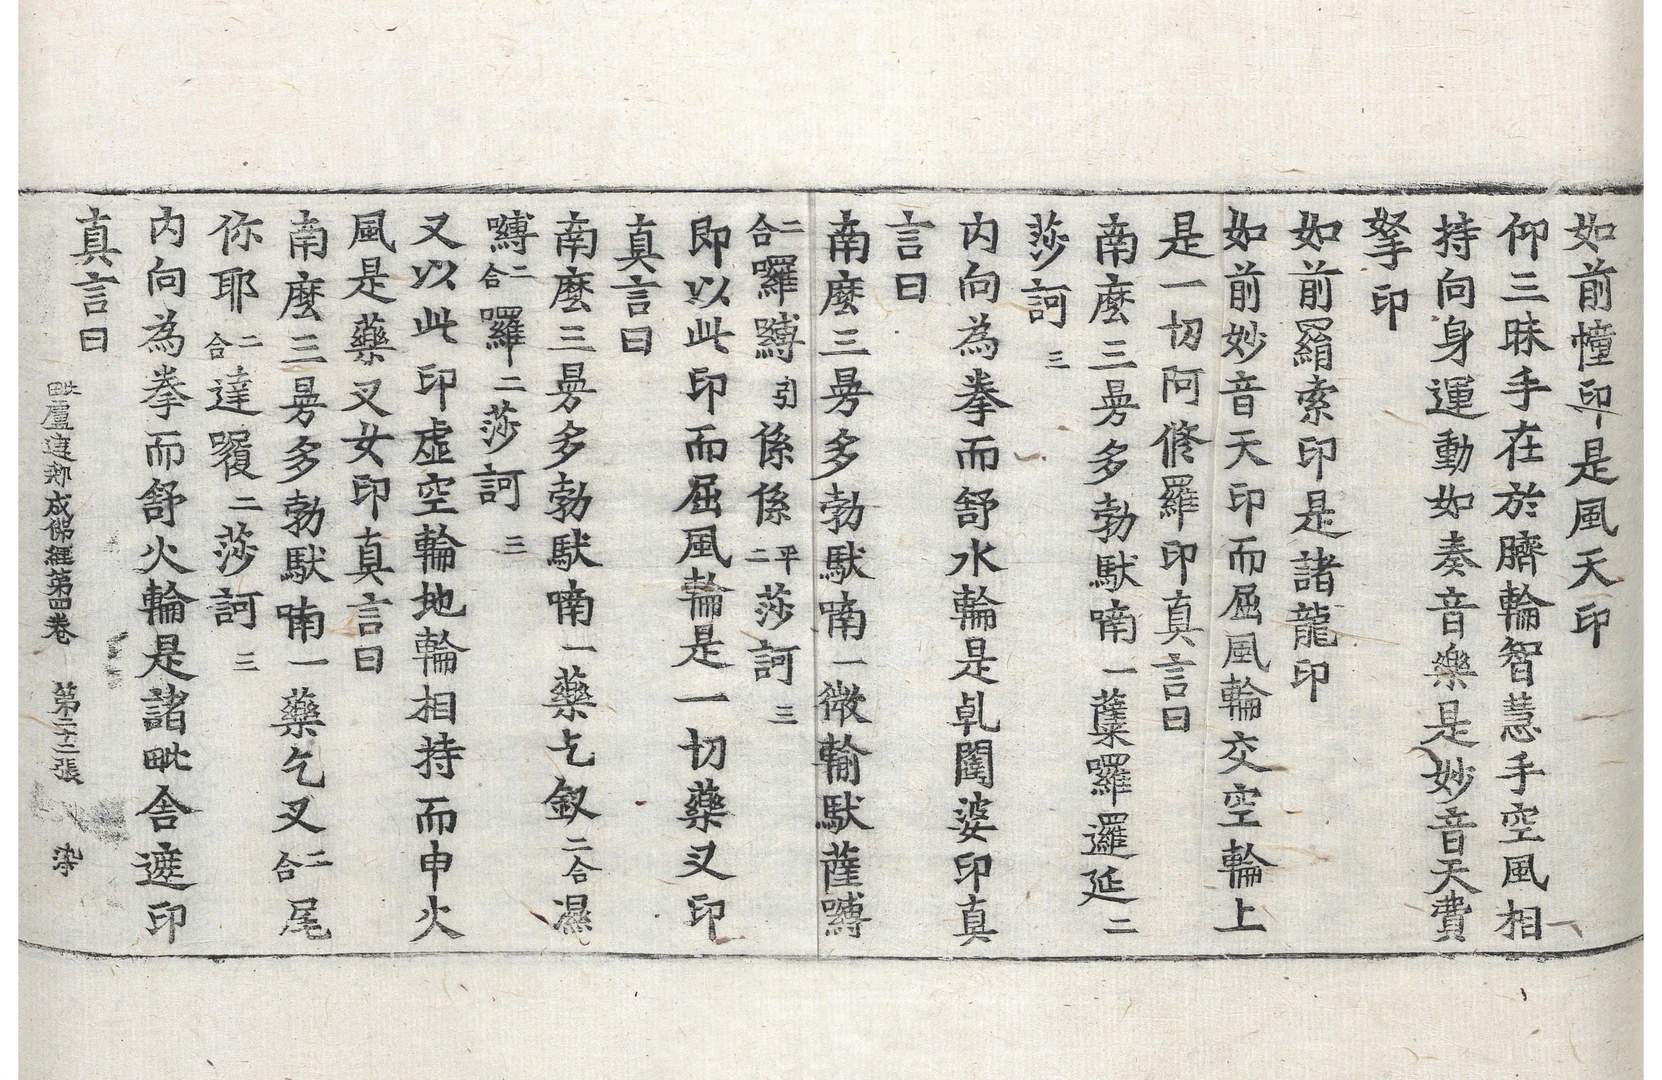 如前幢印是風天印
仰三昧手在於臍輪智慧手空風相
持向身運動如奏音樂是妙音天費
拏印
如前羂索印是諸龍印
如前妙音天印而屈風輪交空輪上
是一切阿修羅印真言曰
南麼三曼多勃馱喃一蘗囉邏延二
莎訶三
內向為拳而舒水輪是乹闥婆印真
言曰
南麼三曼多勃馱喃一微輸馱薩嚩
二合囉嚩引係係平二莎訶三
即以此印而屈風輪是一切藥叉印
真言曰
南麼三曼多勃馱喃一藥乞釵二合濕
嚩二合囉二莎訶三
又以此印虛空輪地輪相持而申火
風是藥叉女印真言曰
南麼三曼多勃馱喃一藥乞叉二合尾
你耶二合達𡃤二莎訶三
內向為拳而舒火輪是諸毗舍遮印
真言曰
毗盧遮那成佛經第四卷 第二十二張 染